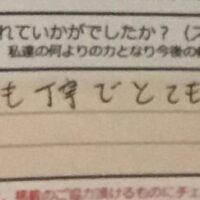 れていかがでしたか？（ス
私達の何よりの力となり今後の
も丁寧でとても
掲載のご協力頂けるものにチェ